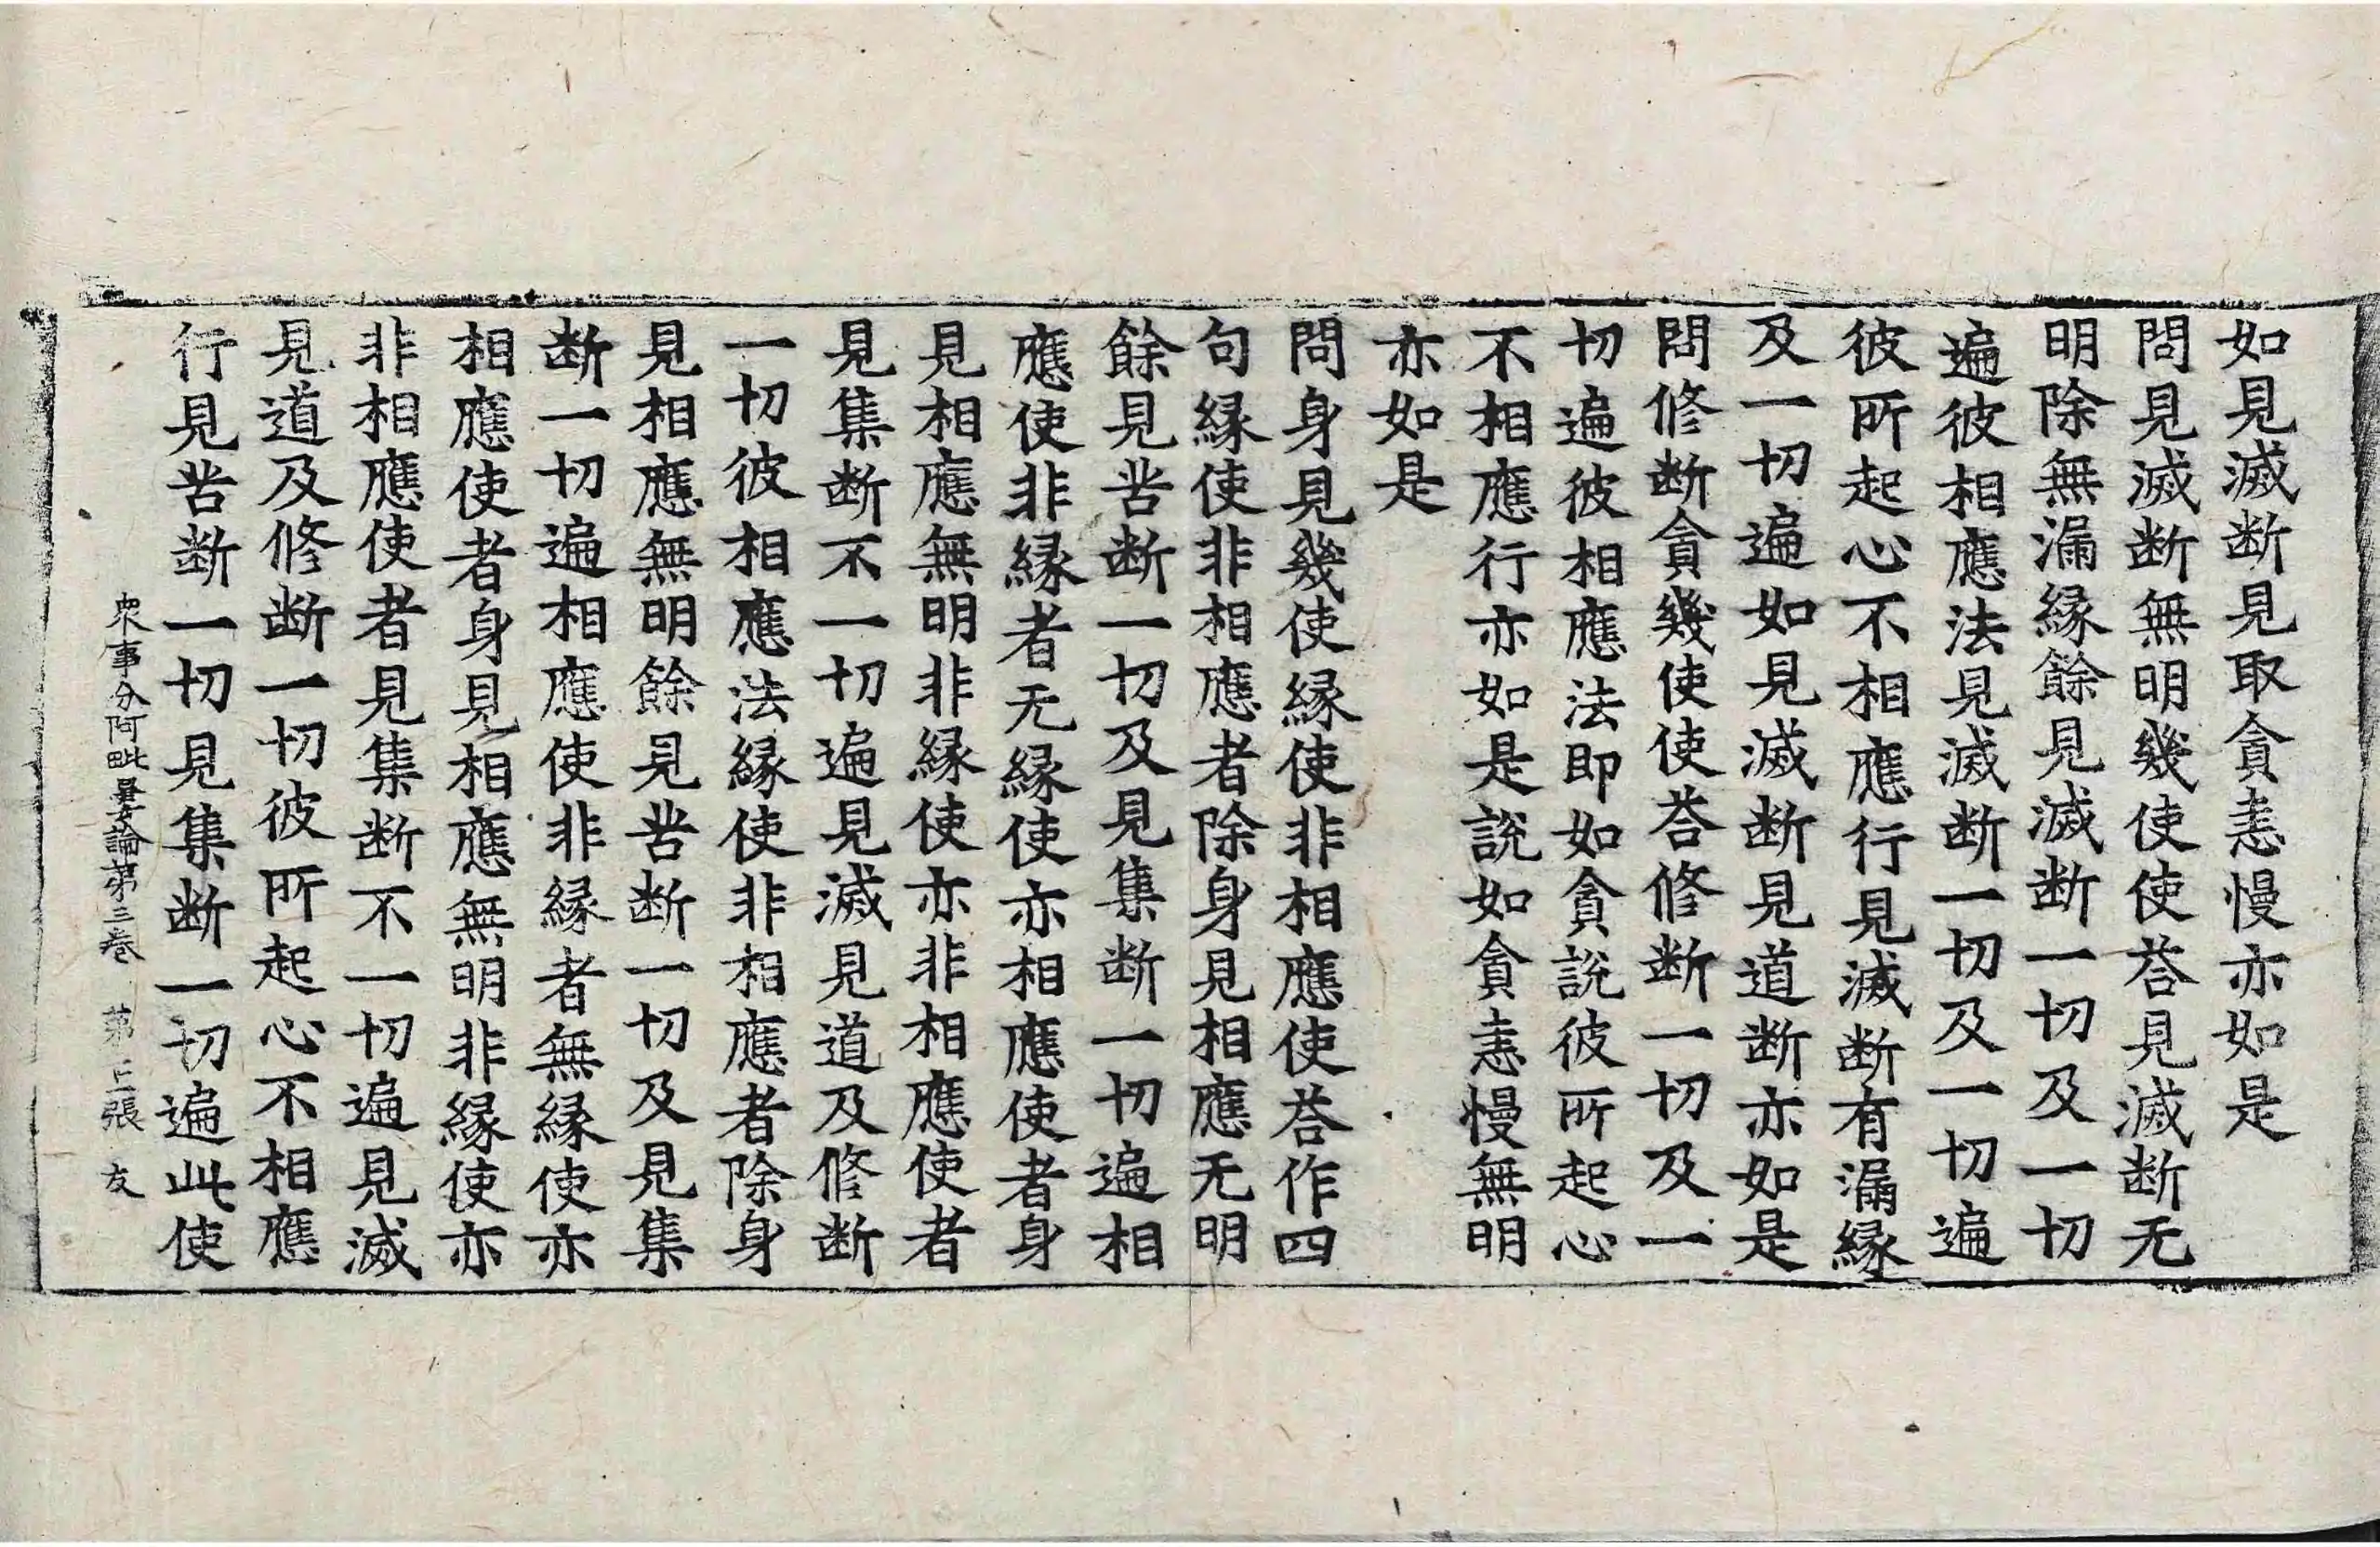 如見滅断見取貪恚慢亦如是
問見滅断無明幾使使荅見滅断无
明除無漏縁餘見滅断一切及一切
遍彼相應法見滅断一切及一切遍
彼所起心不相應行見滅断有漏縁
及一切遍如見滅断見道断亦如是
問修断貪幾使使荅修断一切及一
切遍彼相應法即如貪說彼所起心
不相應行亦如是說如貪恚慢無明
亦如是
問身見幾使縁使非相應使荅作四
句縁使非相應者除身見相應无明
餘見苦断一切及見集断一切遍相
應使非縁者无縁使亦相應使者身
見相應無明非縁使亦非相應使者
見集断不一切遍見滅見道及修断
一切彼相應法縁使非相應者除身
見相應無明餘見苦断一切及見集
断一切遍相應使非縁者無縁使亦
相應使者身見相應無明非縁使亦
非相應使者見集断不一切遍見滅
見道及修断一切彼所起心不相應
行見苦断一切見集断一切遍此使
衆事分阿毗曇論第三卷 第 張 友